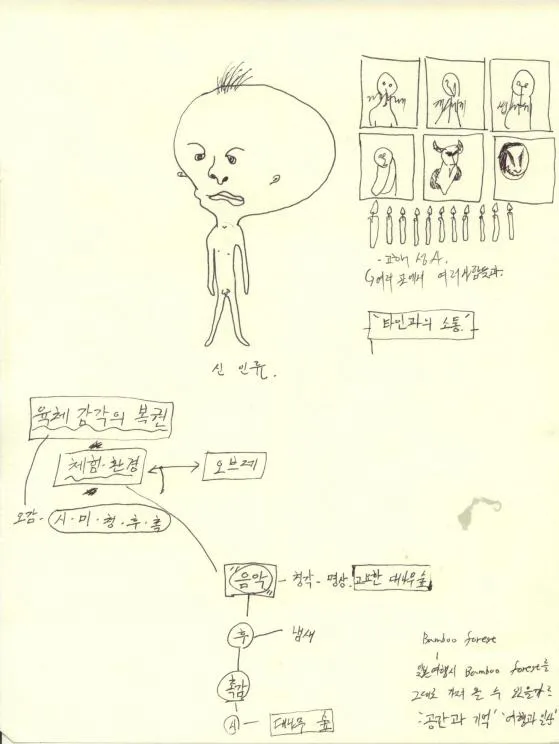 - 고해 성사.
여러 사람들과.
"타인과의 소통"
신 인류.
육체 감각의 복권
체험·환경
오브제
오감 - 시·미·청·후·촉
"음악" - 청각 - 명상. 고요한 대나무 숲
후 - 냄새
촉감
시 - 대나무 숲
Bamboo forest
Bamboo forest를
그대로 가져 올 수 있을까
'공간과 기억'